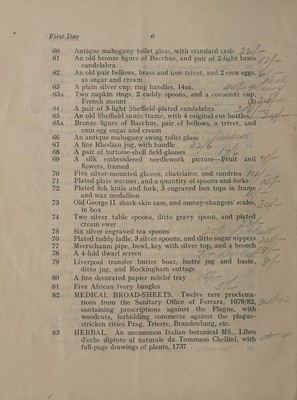 First Day 6
60 Antique mahogany toilet glass, with standard ends
61 An old bronze figure of Bacchus, and pair of 2-light brass
candelabra
62 An old pair bellows, brass and iron trivet, and 2 emu eggs,
as sugar and cream
63 A plain silver cup, ring handles, 14oz.
63A Two napkin rings, 2 caddy spoons, and a cocoanut cup,
French mount (5)
64 A pair of 3-light Sheffield-plated candelabra
65 An old Sheffield sauce frame, with 4 original cut bottles
65A Bronze figure of Bacchus, pair of bellows, a trivet, and
emu egg sugar and cream
66 An antique mahogany swing toilet glass
67 A fine Rhodian jug, with handle
68 A pair of tortoise-shell field-glasses
69 A silk embroidered needlework picture—Fruit and
flowers, framed
70 Five silver-mounted glasses, chatelaine, and sundries
71 Plated plate warmer, and a quantity of spoons and forks
72 Plated fish knife and fork, 3 engraved box tops in frame
and wax medallion
73 Old George II. shark-skin case, and money-changers' scales,
in box
74 Two silver table spoons, ditto gravy spoon, and plated
cream ewer
75 Six silver engraved tea spoons
76 Plated toddy ladle, 3 silver spoons, and ditto sugar nippers
77 Meerschaum pipe, bowl, key with silver top, and a brooch
78 A 4-fold dwarf screen
79 Liverpool transfer butter boat, lustre jug and basin,
ditto jug, and Rockingham cottage
80 A fine decorated papier mâché tray
81 Five African ivory bangles
82 MEDICAL BROAD-SHEETS. Twelve rare proclama-
tions from the Sanitary Office of Ferrara, 1679/82,
containing prescriptions against the Plague, with
woodcuts, forbidding commerce against the plague-
stricken cities Prag, Trieste, Brandenburg, etc.
83 HERBAL. An uncommon Italian botanical MS., Libro
d'erbe dipinte al naturale da Tommaso Chellini, with
full-page drawings of plants, 1737